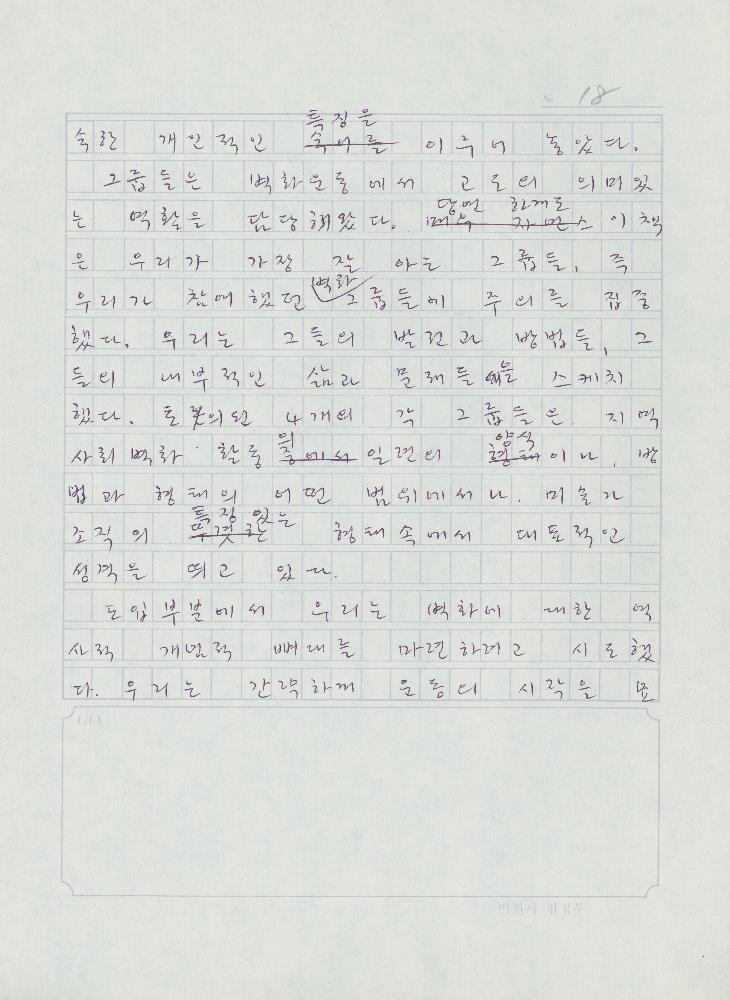 № 18
특징을
속한 개인적인 속에를 이루어 놓았다.
그룹들은 벽화운동에서 고도의 의미있
당연 하게도
는 역할을 담당해왔다. 이 책
은 우리가 가장 잘 아는 그룹들, 즉
벽화
우리가 참여했던 그룹들에 주의를 집중
했다. 우리는 그들의 발전과 방법들, 그
들의 내부적인 삶과 문제들을 스케치
했다. 토론의된 4개의 각 그룹들은 지역
의 양식
사회 벽화 활동 중에서 일련의 형태이나, 방
법과 형태의 어떤 범위에서나, 미술가
특징 있는
조직의 뚜렷한 형태 속에서 대표적인
성격을 띄고 있다.
도입부분에서 우리는 벽화에 대한 역
사적 개념적 뼈대를 마련하려고 시도했
다. 우리는 간략하게 운동의 시작을 묘
(註)
미진사 편집부